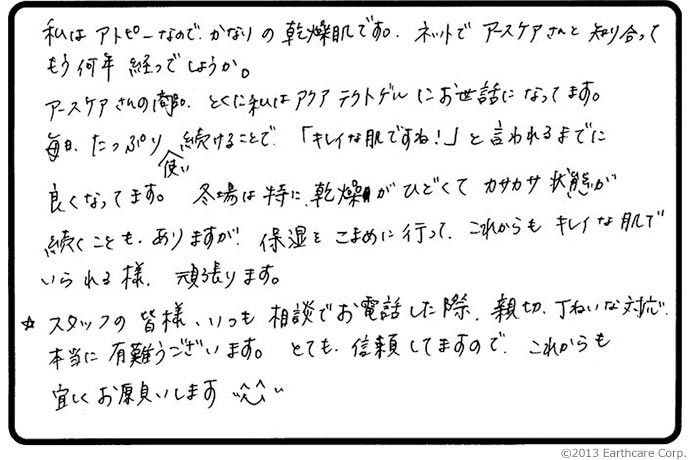 私は アトピーなので、かなりの 乾燥肌です。 ネットで アースケアさんと 知り合って
もう何年 経つでしょうか。
アースケアさんの商品、とくに私はアクアテクトゲルにお世話になってます。
毎日、たっぷり使い続けることで、「キレイな肌ですね！」と言われるまでに
良くなってます。 冬場は特に、乾燥がひどくて カサカサ状態が
続くことも、ありますが、保湿をこまめに行って、これからも キレイな肌で
いられる様、頑張ります。
☆ スタッフの皆様、いつも相談でお電話した際、親切、丁ねいな対応、
本当に有難うございます。 とても、信頼してますので、これからも
宜しくお願いします ^^
©2013 Earthcare Corp.